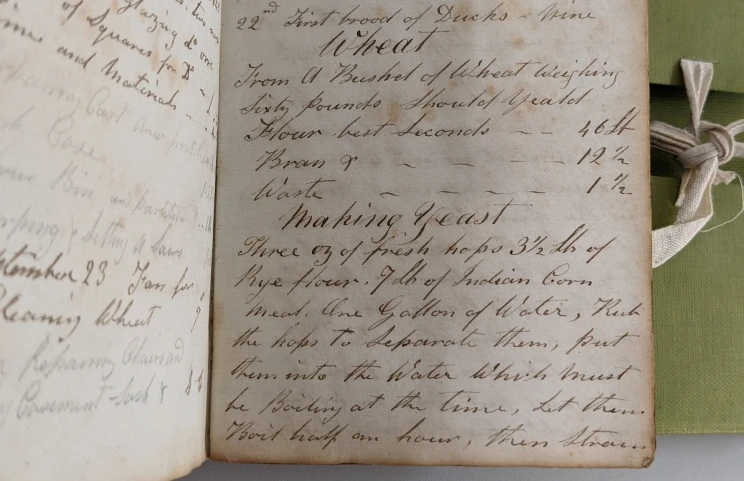 Glazing
of Squares for
and Materials
Repairing
Case
Bin and partition
& Setting a Saws
September 23 Fan for
Cleaning Wheat 9
Repairing Chairs and
Casement Sash &
22nd First brood of Ducks - Nine
Wheat
From A Bushel of Wheat Weighing
Sixty pounds Should Yeald
Flour best Seconds -- 46 lb
Bran & - - - - 12 ½
Waste - - - - 1 ½
Making Yeast
Three oz of fresh hops 3½ lb of
Rye flour. 7 lb of Indian Corn
meal. One Gallon of Water, Rub
the hops to Separate them, put
them into the Water Which must
be Boiling at the time, Let them
Boil half an hour, then Strain